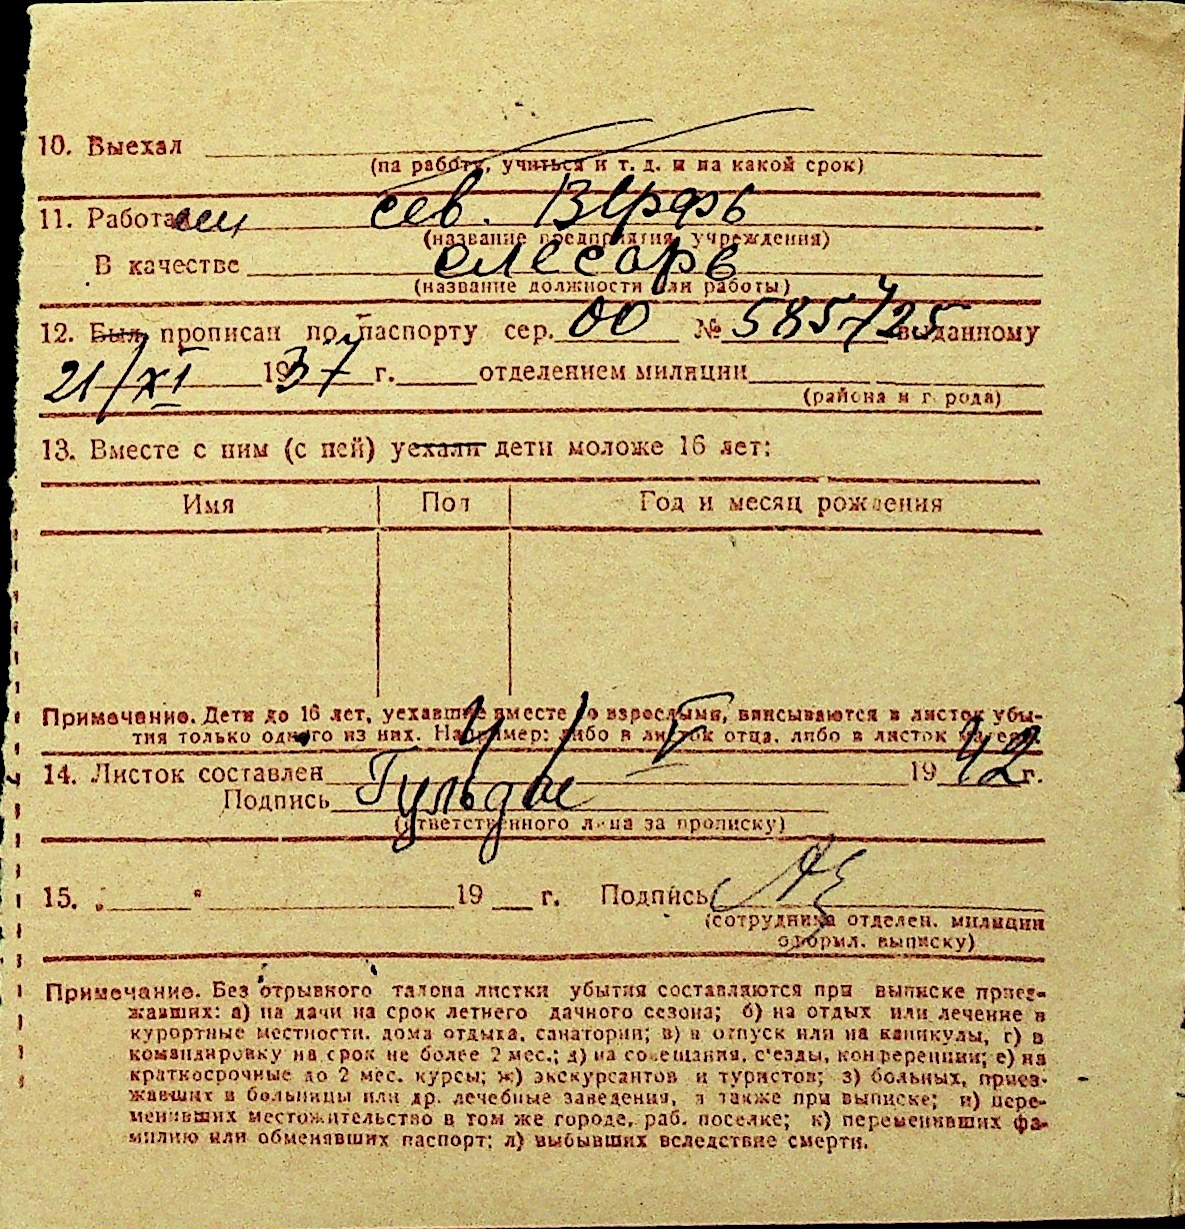 10. Выехал
(на работу, учиться и т. д. и на какой срок)
11. Работа сев. Верфь
(название предприятия, учреждения)
В качестве слесарь
(название должности или работы)
12. Был прописан по паспорту сер. 00 № 585725 выданному
21/XI 1937 г. отделением милиции
(района и города)
13. Вместе с ним (с ней) уехали дети моложе 16 лет:
Имя Пол Год и месяц рождения
Примечание. Дети до 16 лет, уехавшие вместе со взрослыми, вписываются в листок убы-
тия только одного из них. Например: либо в листок отца, либо в листок матери.
14. Листок составлен 4/V 1942 г.
Подпись
(ответственного лица за прописку)
15. „ “ 19 г. Подпись
(сотрудника отделен. милиции
оформл. выписку)
Примечание. Без отрывного талона листки убытия составляются при выписке приез-
жавших: а) на дачи на срок летнего дачного сезона; б) на отдых или лечение в
курортные местности, дома отдыха, санатории; в) в отпуск или на каникулы, г) в
командировку на срок не более 2 мес.; д) на совещания, с'езды, конференции; е) на
краткосрочные до 2 мес. курсы; ж) экскурсантов и туристов; з) больных, приез-
жавших в больницы или др. лечебные заведения, а также при выписке; и) пере-
менивших местожительство в том же городе, раб. поселке; к) переменивших фа-
милию или обменявших паспорт; л) выбывших вследствие смерти.